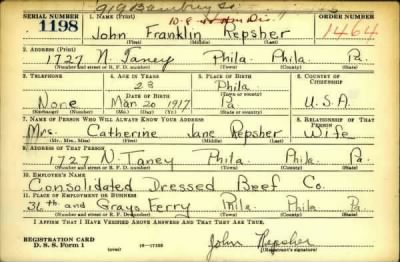 919 Bambrey St
SERIAL NUMBER 1. NAME (Print) ORDER NUMBER
1198 John Franklin Repsher 1464
(First) (Middle) (Last)
2. ADDRESS (Print)
1727 N. Taney Phila. Phila. Pa.
(Number and street or R. F. D. number) (Town) (County) (State)
3. TELEPHONE 4. AGE IN YEARS 5. PLACE OF BIRTH 6. COUNTRY OF CITIZENSHIP
23 Phila
DATE OF BIRTH (Town or county)
None Mar 20 1917 Pa U.S.A.
(Exchange) (No.) (Mo.) (Day) (Yr.) (State or country)
7. NAME OF PERSON WHO WILL ALWAYS KNOW YOUR ADDRESS 8. RELATIONSHIP OF THAT PERSON
Mrs. Catherine Jane Repsher Wife
(Mr., Mrs., Miss) (First) (Middle) (Last)
9. ADDRESS OF THAT PERSON
1727 N. Taney Phila. Phila. Pa.
(Number and street or R. F. D. number) (Town) (County) (State)
10. EMPLOYER'S NAME
Consolidated Dressed Beef Co.
11. PLACE OF EMPLOYMENT OR BUSINESS
36th and Grays Ferry Phila. Phila Pa
(Number and street or R. F. D. number) (Town) (County) (State)
I AFFIRM THAT I HAVE VERIFIED ABOVE ANSWERS AND THAT THEY ARE TRUE.
REGISTRATION CARD
D. S. S. Form 1 (over) 16—17105 John Repsher
(Registrant's signature)